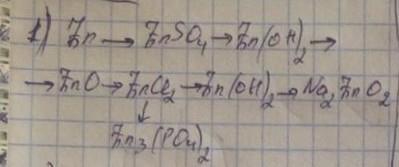 1) Zn → ZnSO₄ → Zn(OH)₂ →
→ ZnO → ZnCl₂ → Zn(OH)₂ → Na₂ZnO₂
↓
Zn₃(PO₄)₂